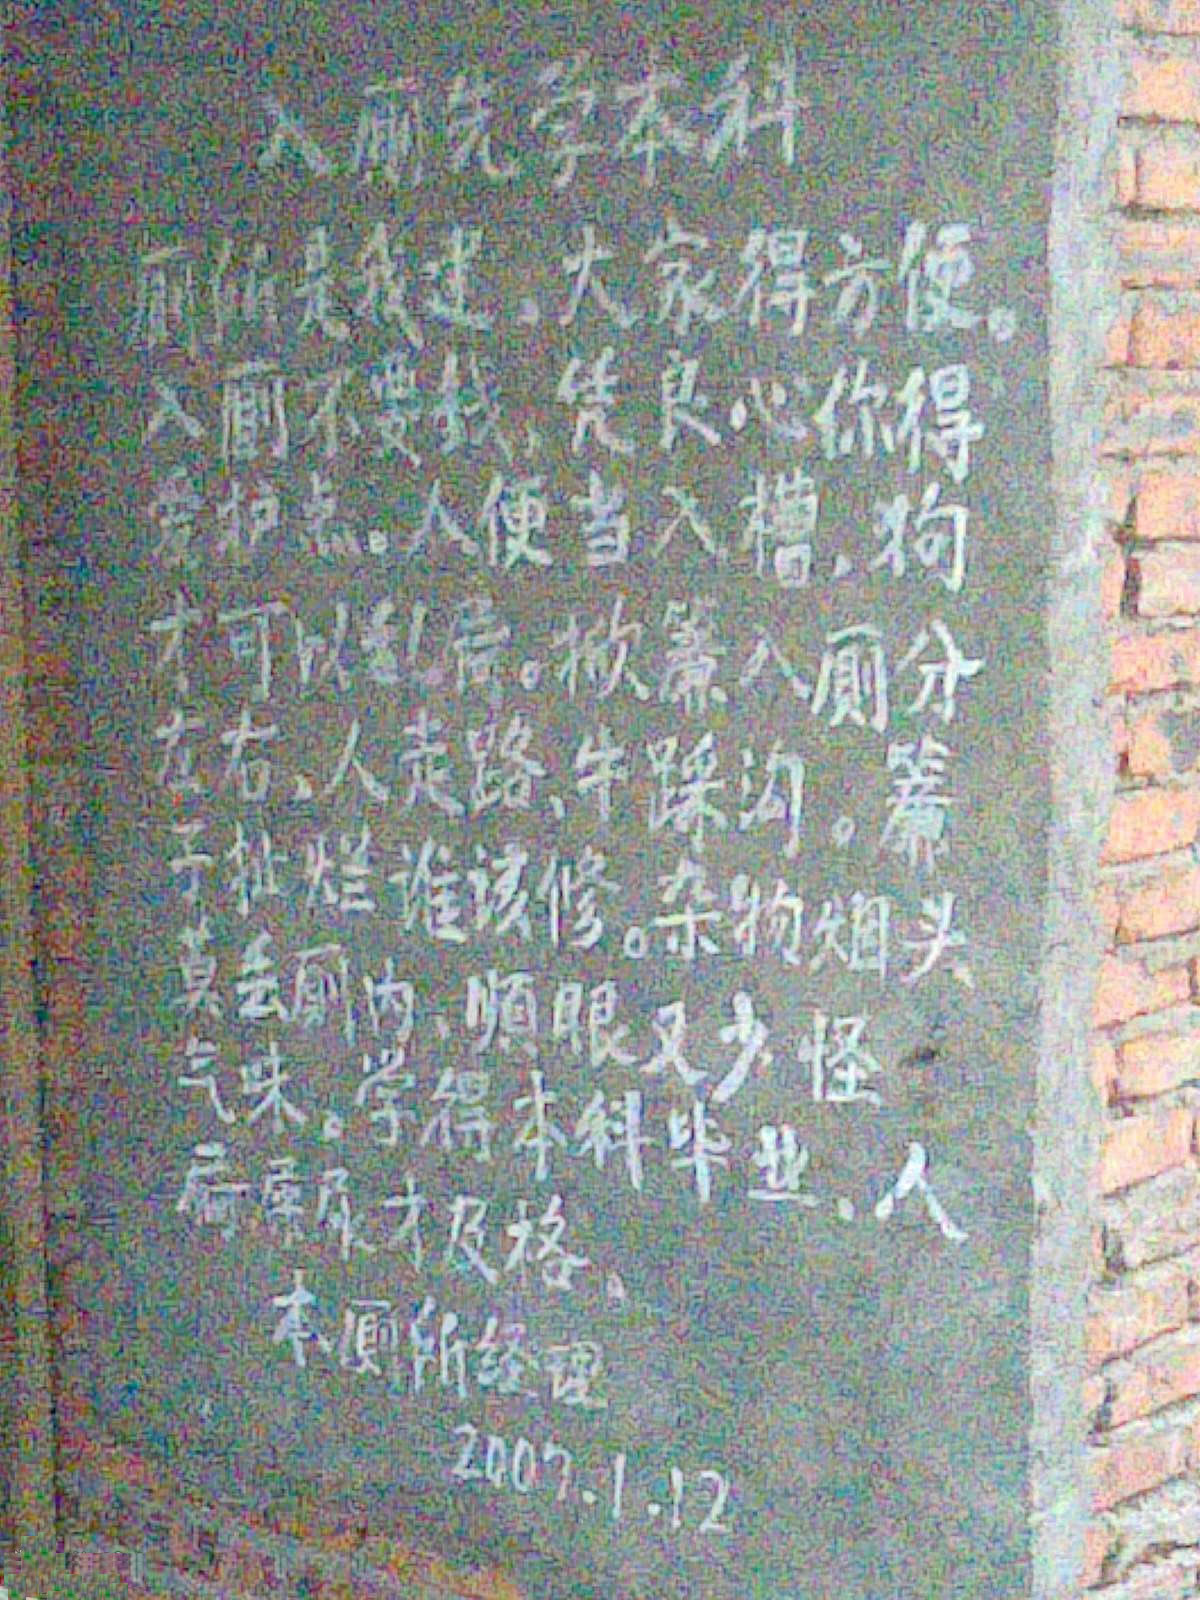 入厕先学本科
厕所是我建、大家得方便。
入厕不要钱、凭良心你得
爱护点。人便当入槽、狗
才可以乱屙。掀簾入厕分
左右、人走路、牛踩沟。簾
子扯烂谁该修。杂物烟头
莫丢厕内、顺眼又少怪
气味。学得本科毕业、人
屙屎尿才及格、
本厕所经理
2007.1.12